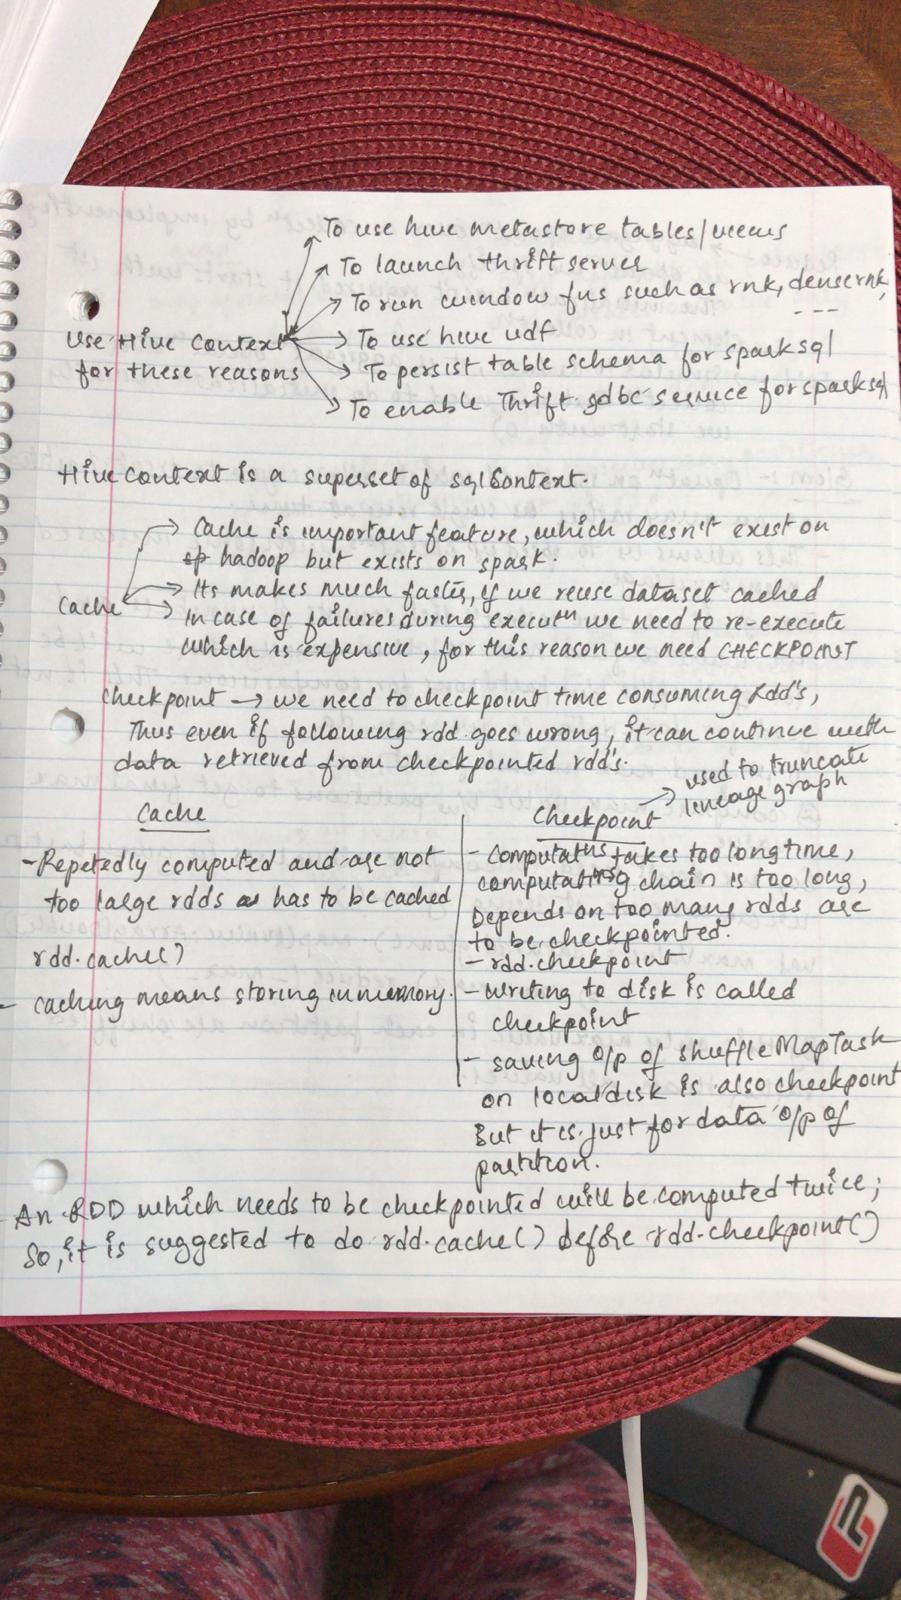 To use hive metastore tables/views
To launch thrift server
To run window fns such as rnk, densernk,
---
Use Hive Context
for these reasons
To use hive udf
To persist table schema for sparksql
To enable Thrift jdbc service for sparksql
Hive Context is a superset of sqlContext.
Cache
Cache is important feature, which doesn't exist on
hadoop but exists on spark.
Its makes much faster, if we reuse dataset cached
In case of failures during executn we need to re-execute
which is expensive, for this reason we need CHECKPOINT
Checkpoint → we need to checkpoint time consuming Rdd's,
Thus even if following rdd goes wrong, it can continue with
data retrieved from checkpointed rdd's.
Cache
- Repetedly computed and are not
too large rdds has to be cached
rdd.cache()
- caching means storing in memory.
Checkpoint → used to truncate
lineage graph
- Computatns takes too long time,
computating chain is too long,
Depends on too many rdds are
to be checkpointed.
- rdd.checkpoint
- writing to disk is called
checkpoint
- saving o/p of shuffleMapTask
on local disk is also checkpoint
But it is just for data o/p of
partition.
- An RDD which needs to be checkpointed will be computed twice;
So, it is suggested to do rdd.cache() before rdd.checkpoint()